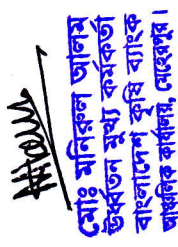 মোঃ মনিরুল আলম
উর্ধ্বতন মুখ্য কর্মকর্তা
বাংলাদেশ কৃষি ব্যাংক
আঞ্চলিক কার্যালয়, মেহেরপুর।